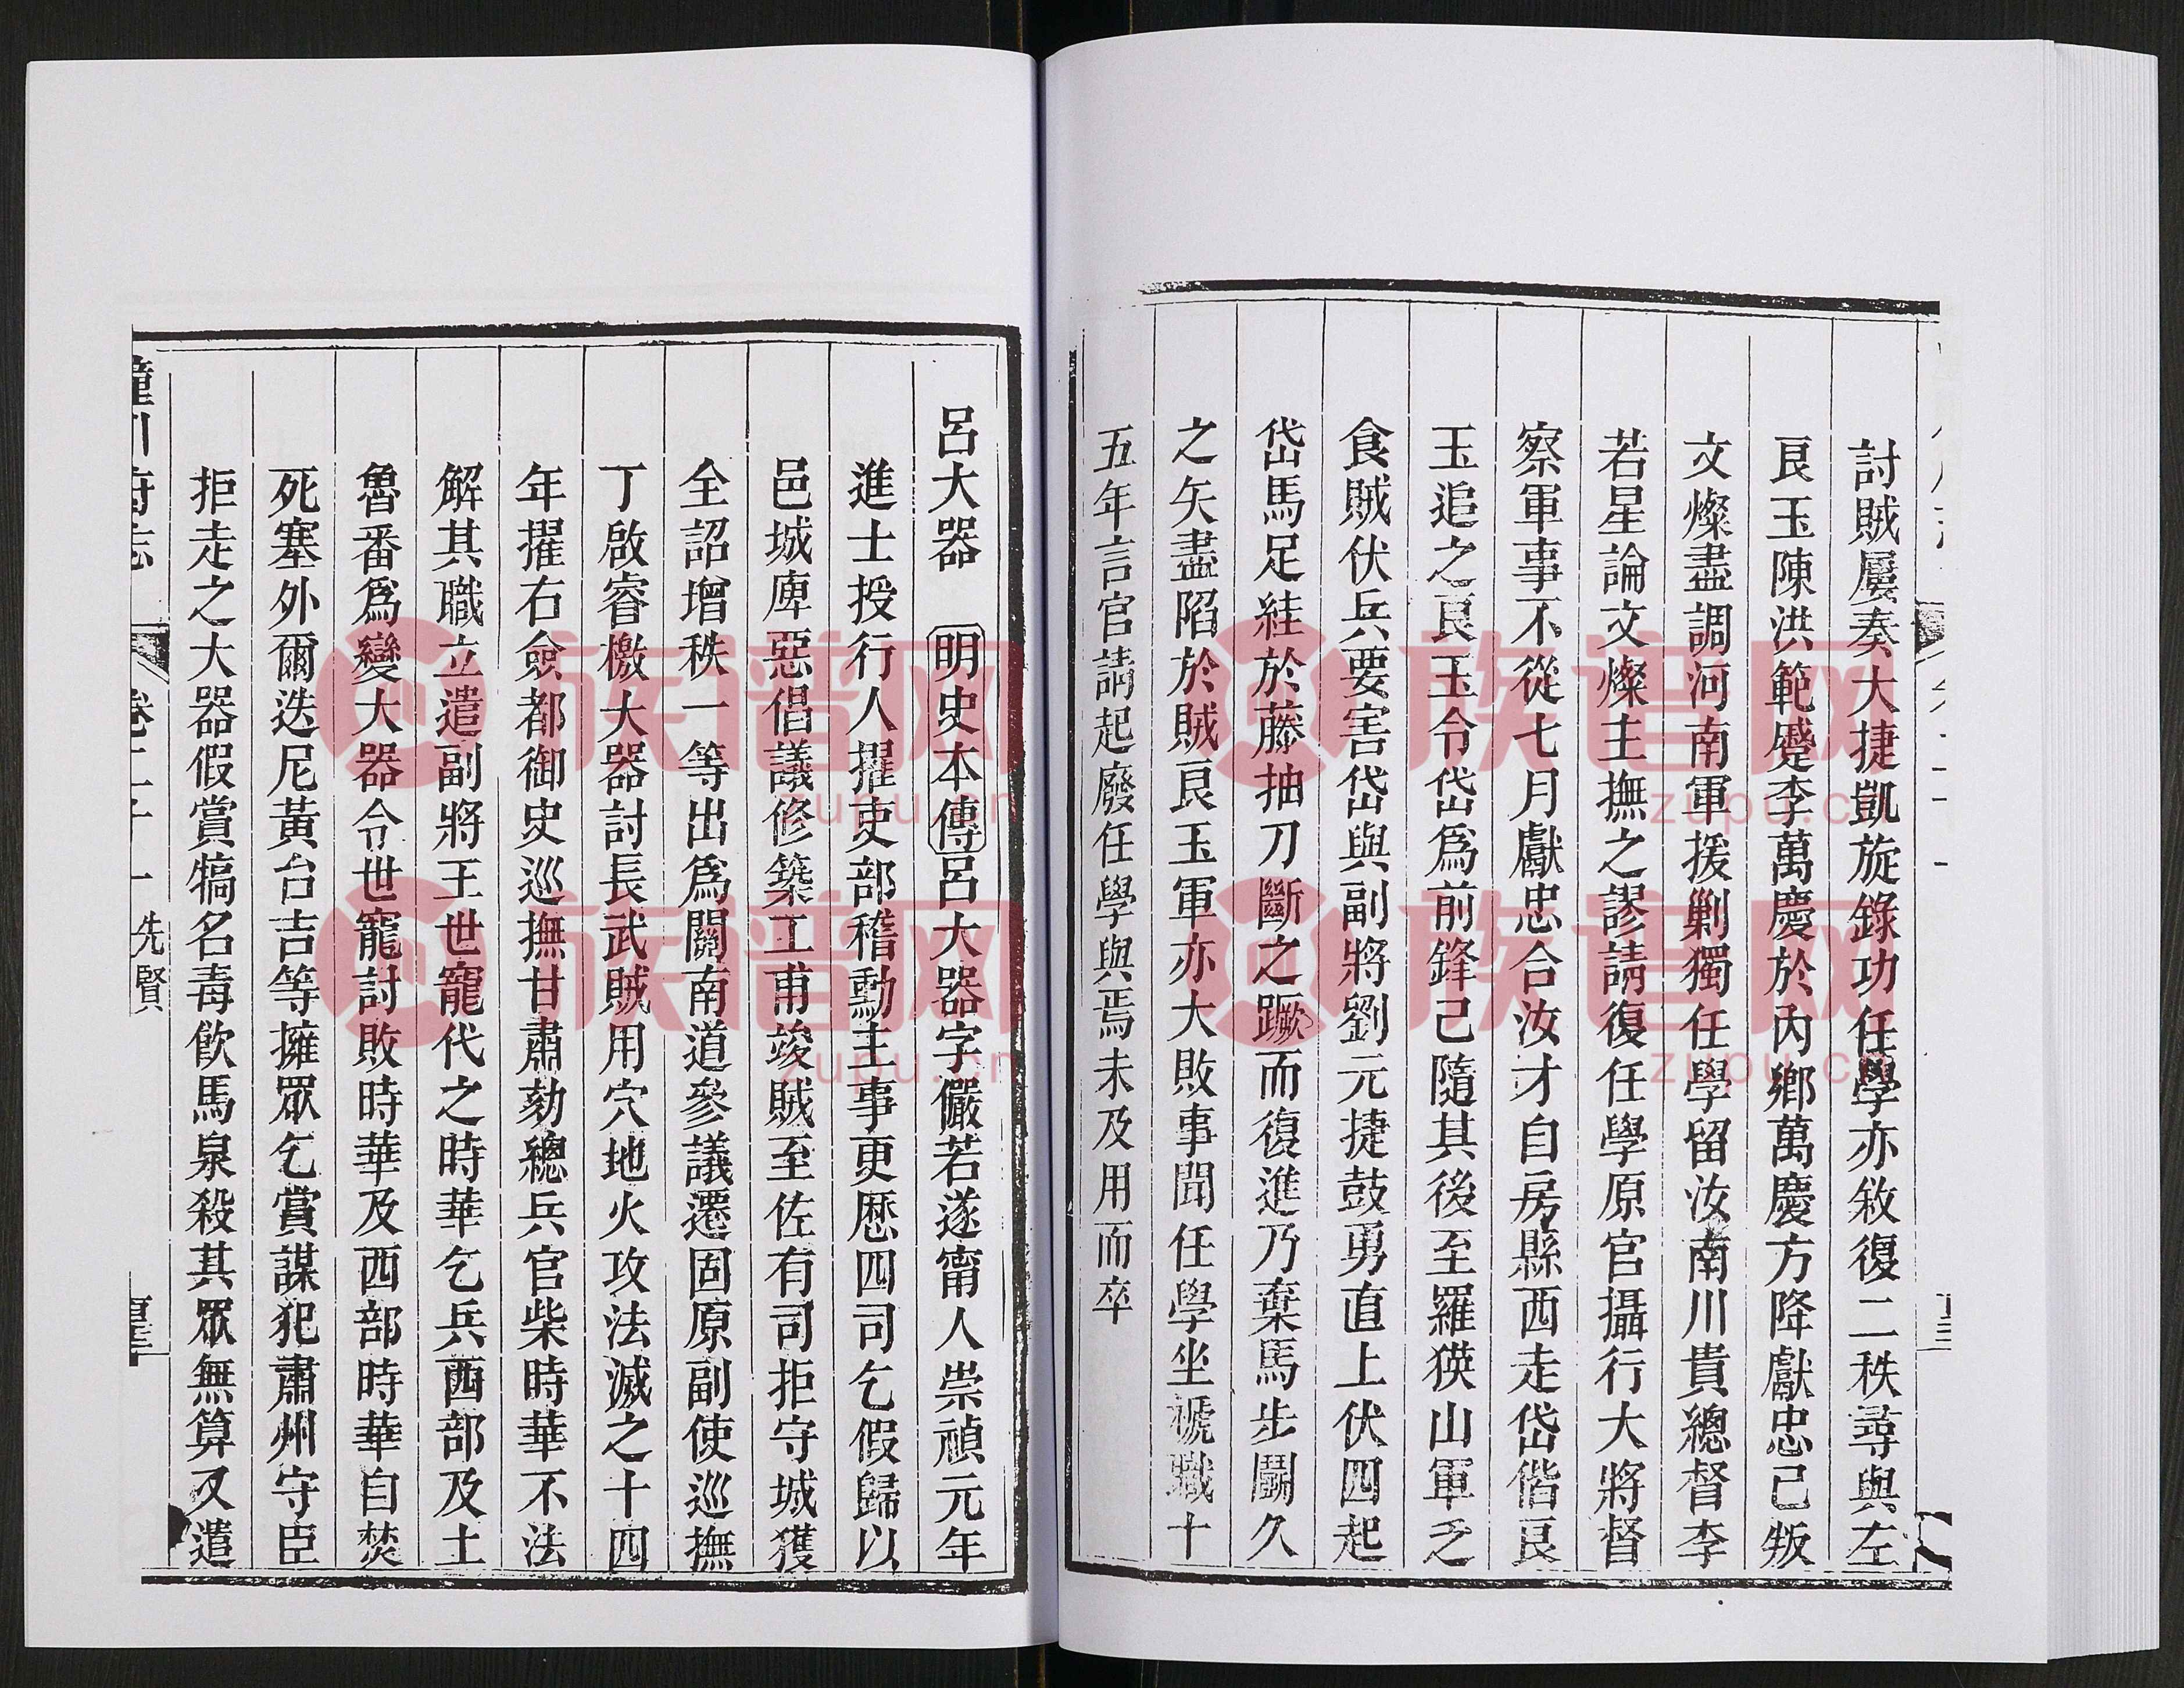 討賊屢奏大捷凱旋錄功任學亦敘復二秩尋與左
良玉陳洪範蹙李萬慶於內鄉萬慶方降獻忠已叛
文燦盡調河南軍援剿獨任學留汝南川貴總督李
若星論文燦主撫之謬請復任學原官攝行大將督
察軍事不從七月獻忠合汝才自房縣西走岱偕良
玉追之良玉令岱爲前鋒己隨其後至羅猰山軍乏
食賊伏兵要害岱與副將劉元捷鼓勇直上伏四起
岱馬足絓於藤抽刀斷之蹶而復進乃棄馬步鬬久
之矢盡陷於賊良玉軍亦大敗事聞任學坐褫職十
五年言官請起廢任學與焉未及用而卒
呂大器 明史本傳呂大器字儼若遂甯人崇禎元年
進士授行人擢吏部稽勳主事更歷四司乞假歸以
邑城庳惡倡議修築工甫竣賊至佐有司拒守城獲
全詔增秩一等出爲關南道參議遷固原副使巡撫
丁啟睿檄大器討長武賊用穴地火攻法滅之十四
年擢右僉都御史巡撫甘肅劾總兵官柴時華不法
解其職立遣副將王世寵代之時華乞兵西部及土
魯番爲變大器令世寵討敗時華及西部時華自焚
死塞外爾迭尼黃台吉等擁眾乞賞謀犯肅州守臣
拒走之大器假賞犒名毒飲馬泉殺其眾無算又遣
潼川府志 卷二十一 先賢
族谱网
zupu.cn
族谱网
zupu.cn
族谱网
zupu.cn
族谱网
zupu.cn